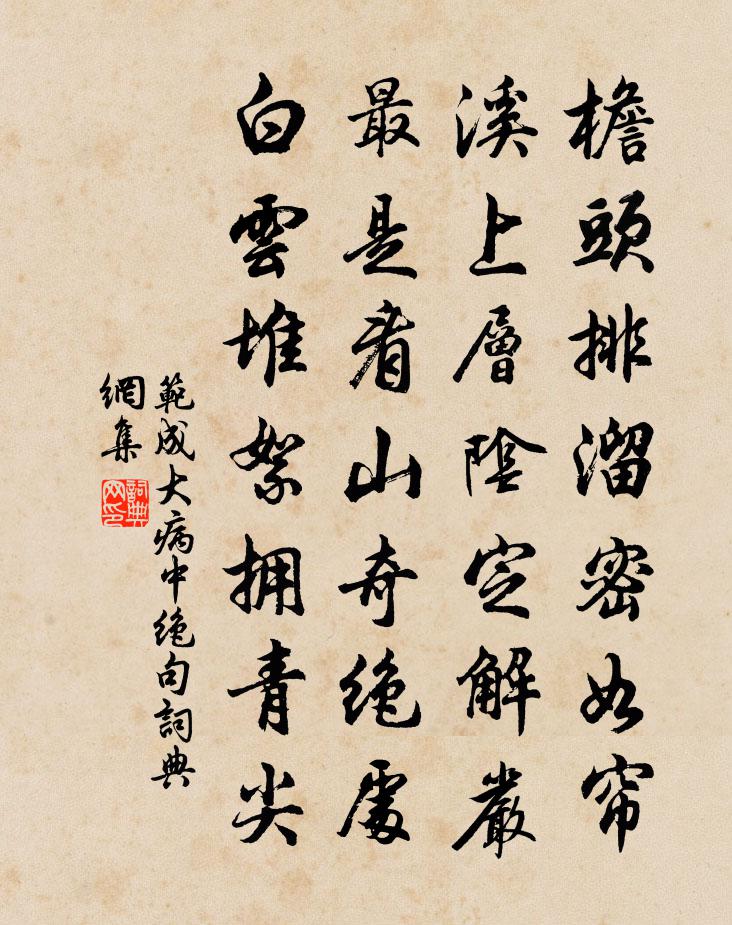 檐頭排溜密如帘
溪上層陰定解嚴
最是看山奇絶處
白雲堆絮擁青尖
範成大病中絶句詞典
網集
詞典
网印